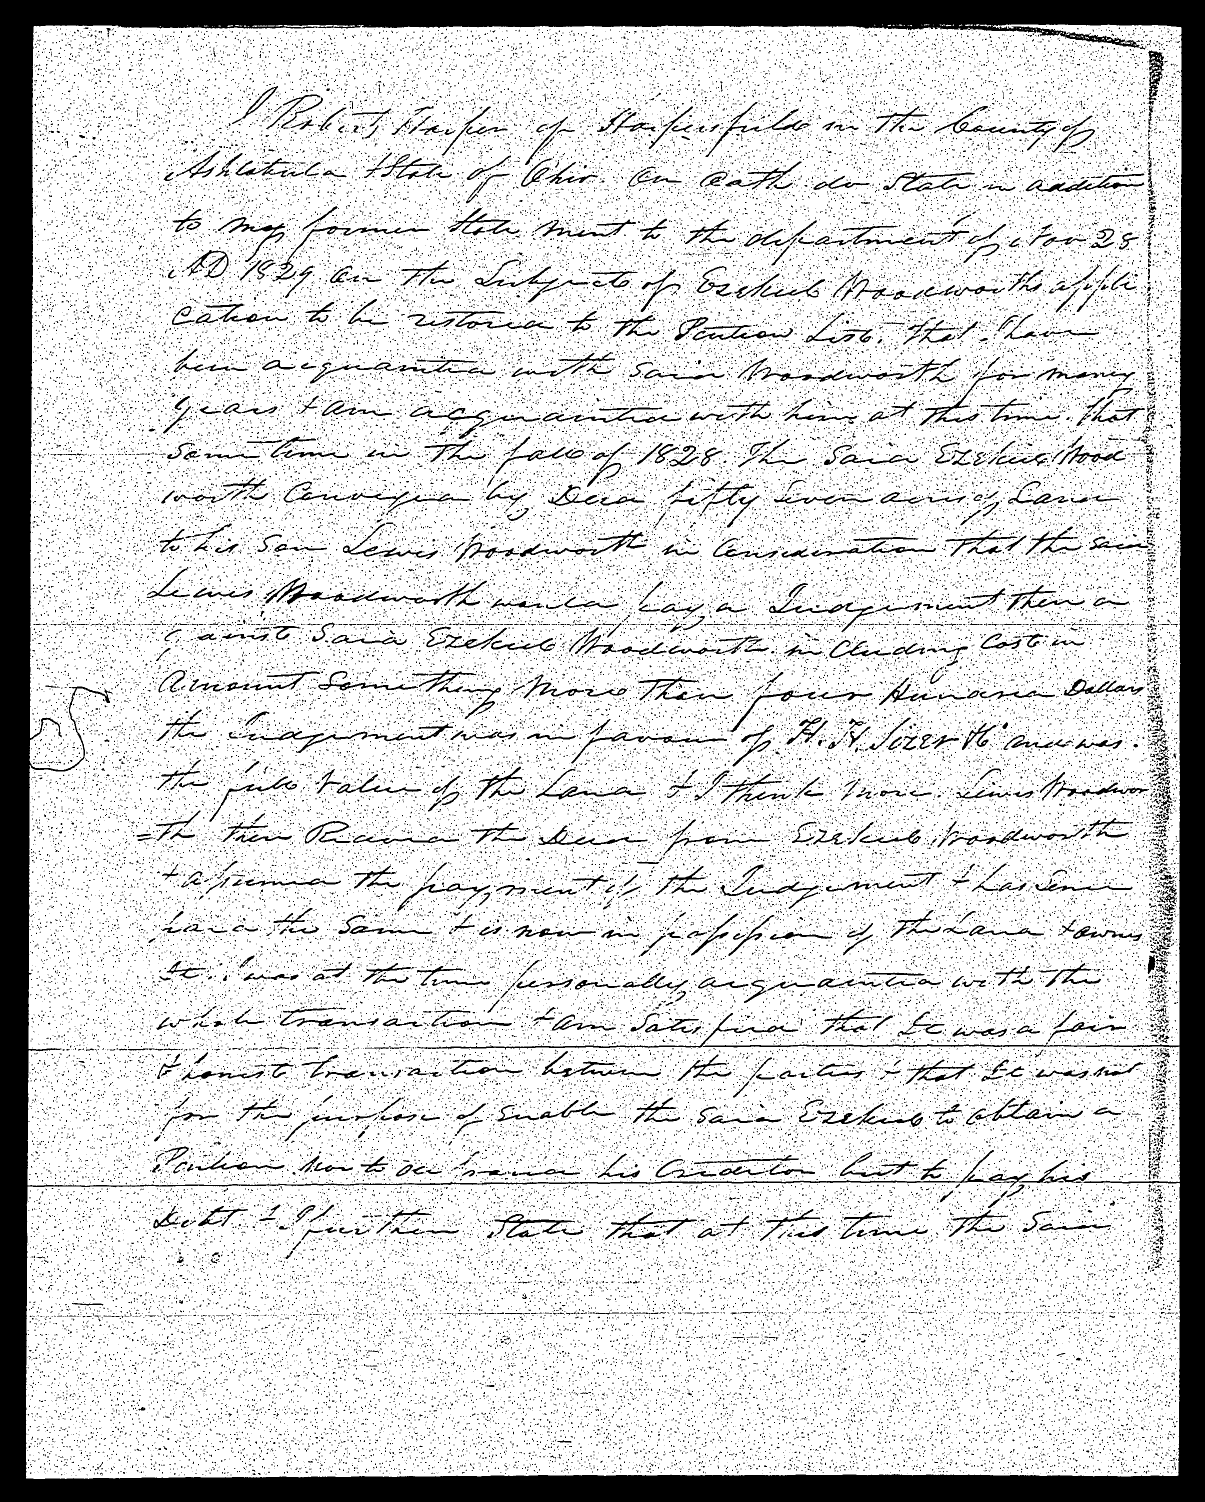 I Robert Harper of Harpersfield in the County of
Ashtabula & State of Ohio. On Oath do State in addition
to my former State ment to the department of Nov 28
AD 1829 on the Subject of Ezekiel Woodworths appli
cation to be restored to the Pention List. That I have
been acquainted with Said Woodworth for many
years & am acquainted with him at this time. That
some time in the fall of 1828 The Said Ezekiel Wood
worth Conveyed by Deed fifty Seven acres of Land
to his Son Lewis Woodworth in Consideration that the said
Lewis Woodworth would pay a Judgement then a
gainst Said Ezekiel Woodworth including Cost in
amount Something More than four Hundred Dollars
the Judgement was in favour of H. H. Sizer & Co and was
the full Value of the Land & I think More. Lewis Woodwor
=th then Recievd the Deed from Ezekiel Woodworth
& assumed the payment of the Judgement & has Since
paid the Same & is now in possession of the Land & owns
It. I was at the time personally acquainted with the
whole transaction & am Satisfied that It was a fair
& honest transaction between the parties & that It was not
for the purpose of Enable the Said Ezekiel to obtain a
Pention Nor to defraud his Creditor but to pay his
Debt. & I further State that at this time the Said